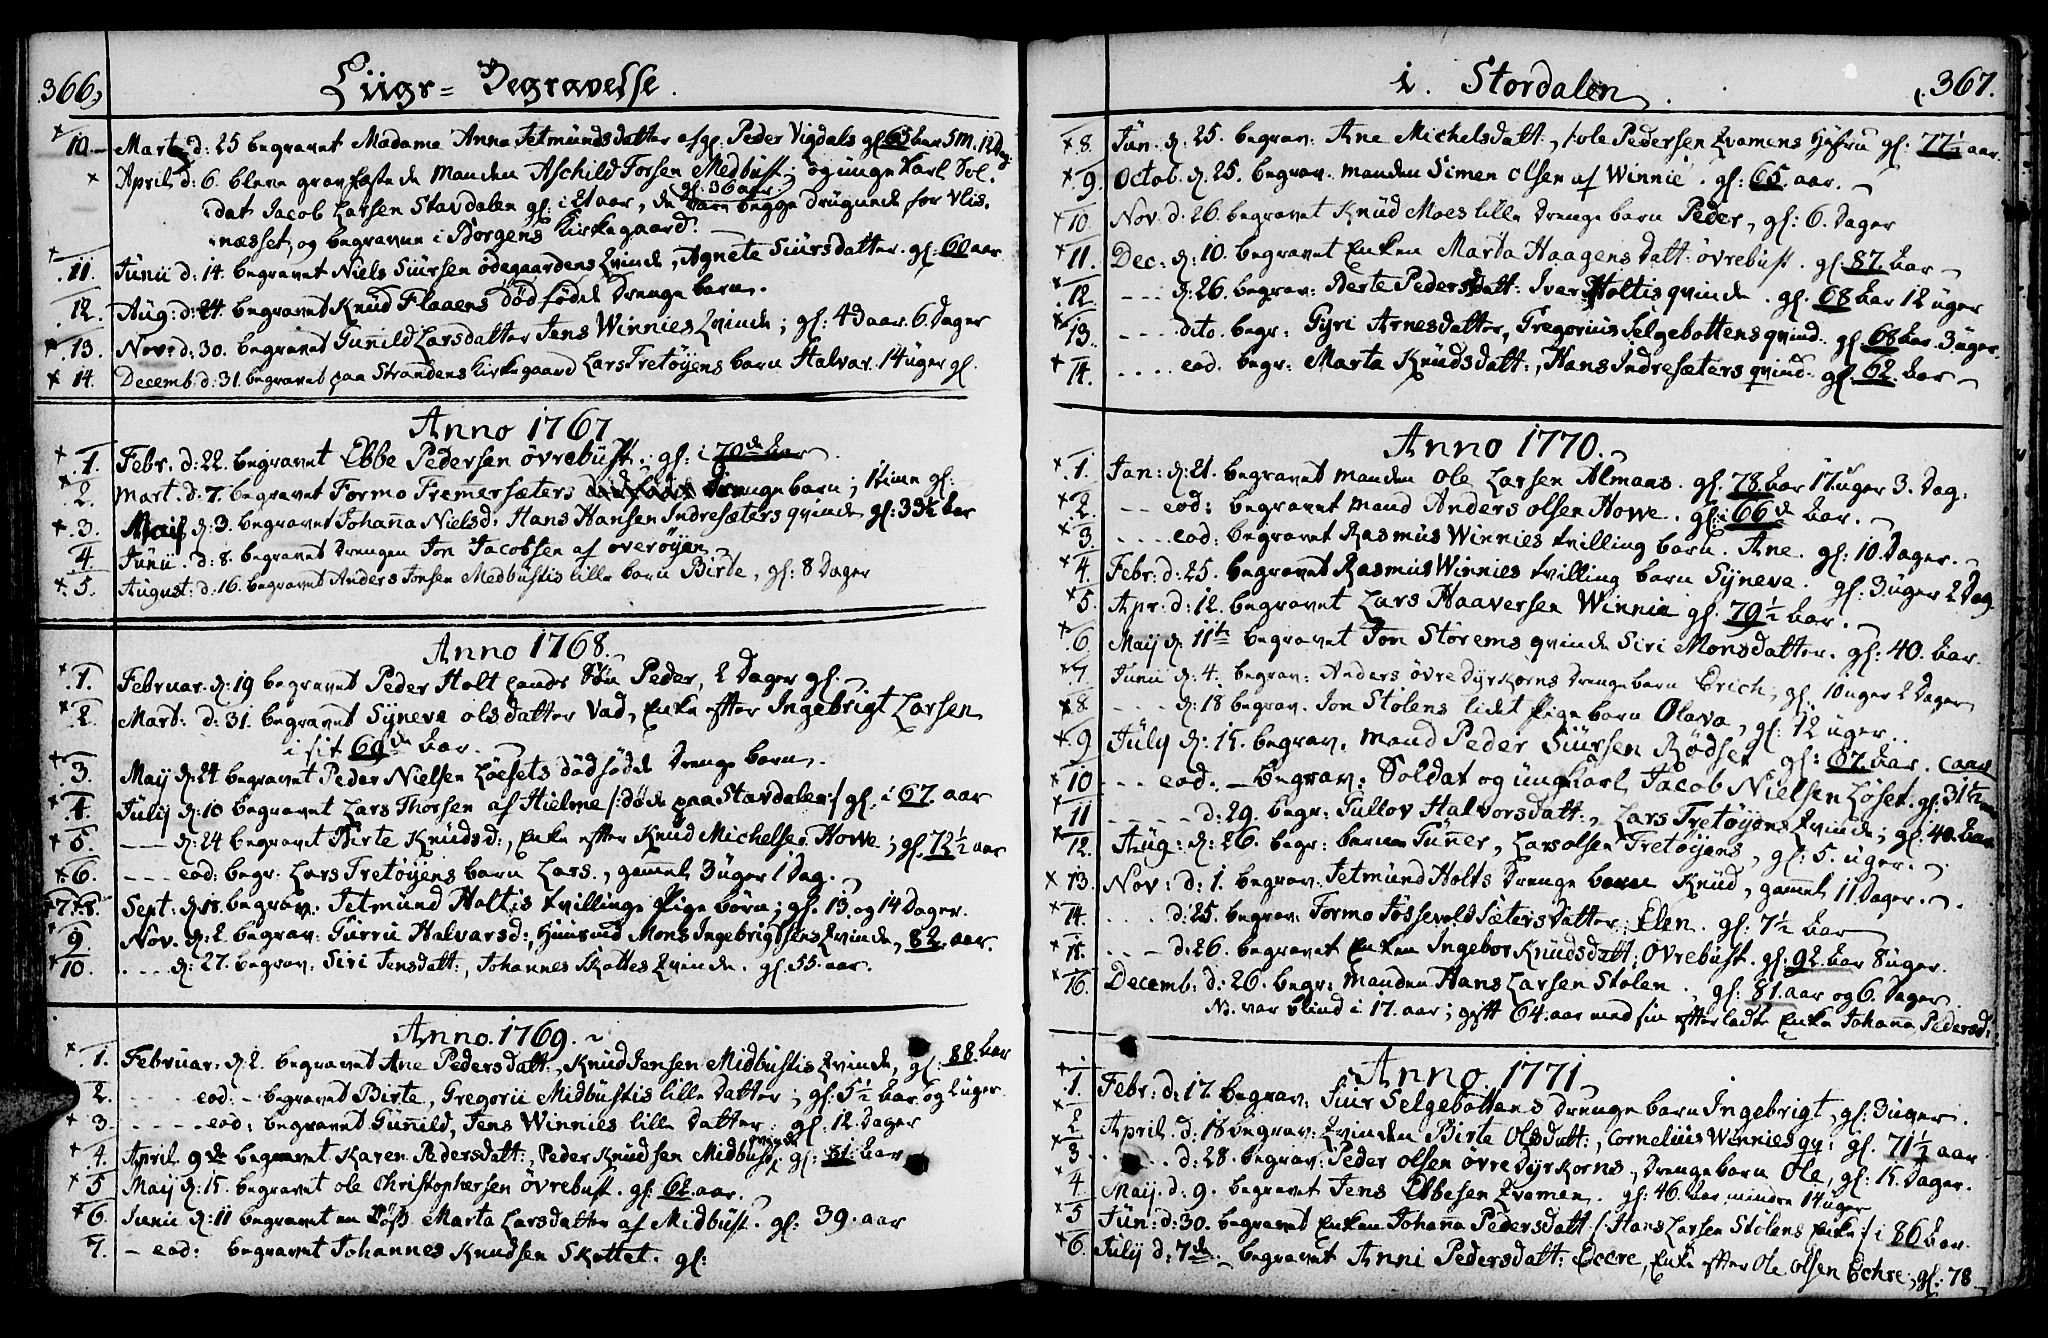 366. Liigr=Begravelse.
10. Mart. d: 25 begravet Madame Anna Jetmundsdatter afg. Peder Vigdals gl. 63 aar 5 M. 12 Dag:
April d: 6. bleve gravfæstede Manden Aschild Torsen Medbust; og unge Karl Sol-
gl: 36 aar.
dat Jacob Larsen Stavdalen gl: i 21 aar, de vare begge drugnede for Vlis-
næsset, og begravne i Borgens Kirkegaard.
11. Junii d: 14. begravet Niels Siursen ødegaardens Qvinde, Agnete Siursdatter. gl: 60 aar
12. Aug: d: 24. begravet Knud Flaaens dødfødde Drenge barn.
13. Nov: d: 30. begravet Gunild Larsdatter Jens Winnies Qvinde; gl: 40 aar. 6. Dager
14. Decemb. d: 31. begravet paa Strandens Kirkegaard Lars Tretøyens barn Halvar. 14 uger gl.
Anno 1767
1. Febr. d: 22. begravet Ebbe Pedersen øvrebust. gl: i 70de Aar.
2. Mart. d. 7. begravet Formo Fremersæters Drenge barn; 1 time gl:
3. Maij d: 3. begravet Johana Nielsd: Hans Hansen Indresæters qvinde gl: 33½ Aar
4. Junii. d: 8. begravet Drengen Jon Jacobsen af overøyen
5. August: d: 16. begravet Anders Jonsen Medbustis lille barn Birte, gl: 8 Dager
Anno 1768.
1. Februar. d: 19 begravet Peder Holt Søn Peder, 2 Dager gl.
2. Mart: d: 31. begravet Syneva olsdatter Vad, Enke effter Ingebrigt Larsen
i sit 69de Aar.
3. Maij d: 24. begravet Peder Nielsen Løesets dødfødde Drenge barn.
4. Julij d: 10 begravet Lars Thorsen af Hielme /: døde paa Stavdalen :/ gl. i 67. aar
5. --- d: 24 begravet Birte Knudsd:, Enke effter Knud Michelsen Howe; gl. 72½ aar
6. --- eod: begr: Lars Tretøyens barn Lars., gamel 3 uger 1 Dag.
7. 8. Sept: d: 18. begrav: Jetmund Holtis tvillinge Pige børn; gl. 13. og 14 Dager.
9. Nov. d: 2. begrav: Gurru Halvarsd:, Mons Ingebrigtsens Qvinde, 82. aar.
10. ... d: 27. begrav. Siri Jensdatt:, Johannes Skottes Qvinde. gl. 55. aar.
Anno. 1769.
1. Februar. d: 2. begravet Ane Pedersdatt:, Knud Jensen Midbustis Qvinde, gl: 88. Aar
2. eod: - begravet Birte, Gregorii Midbustis lille Datter; gl: 5½ Aar. og 2 uger.
3. eod: begravet Gunild, Jens Winnies lille datter. gl: 12. Dager
4. April 9de begravet Karen Pedersdatt:, Peder Knudsen Midbust qvinde gl: 81. Aar
5. Maij d: 15. begravet ole Christophersen øvrebust. gl. 62. aar.
6. Junii d: 11 begravet en Marta Larsdatter af Midbust. gl: 39. aar
7. - eod: begravet Johannes Knudsen Skottet. gl:
i. Stordalen. 367.
8. Jun. d: 25. begrav: Ane Michelsdatt:, ole Pedersen Qvamens gl: 77½ aar.
9. Octob. d. 25. begrav. manden Simen olsen af Winnie. gl: 65. aar.
10. Nov. d: 26. begravet Knud Moes lille Drenge barn Peder, gl: 6. Dager
11. Dec: d: 10. begravet Enken Marta Haagensdatt: øvrebust. gl. 87. Aar
12. --- d: 26. begrav: Berte Pedersdatt: Iver Holtis qvinde. gl. 68 Aar 12 uger
13. --- dito. begr: Gyri Arnesdatter, Gregorius Selgebottens qvind. gl. 68 Aar. 3 uger.
14. .... eod. begr: Marta Knudsdatt:, Hans Indresæters qvind. gl. 62. Aar
Anno 1770.
1. Jan: d: 21. begravet manden Ole Larsen Almaas. gl. 78. aar 17. uger 3. Dag:
2. -- eod: begravet mand Anders olsen Howe. gl: i 66de Aar.
3. --- eod: begravet Rasmus Winnies tvilling barn. Ane. gl: 10. Dager.
4. Febr: d: 25. begravet Rasmus Winnies tvilling barn Syneva. gl: 3 uger 2 Dag
5. Apr: d: 12. begravet Lars Haaversen Winnie gl. 79½ Aar.
6. Maij d. 11te begravet Jon Storems qvinde Siri Monsdatter. gl: 40. Aar.
7. Junii d: 4. begrav: Anders øvre Dyrkorns Drenge barn Erich, gl. 10 uger 2 Dager
8. ---- d: 18 begrav. Jon Stolens lidet Pige barn Olava, gl: 12 uger.
9. July d: 15. begrav. mand Peder Siursen Rødset gl: 67. Aar.
10. --- eod. - begrav: Soldat og ung Karl Jacob Nielsen Løset. gl. 31½
11. --- d: 29. begr: Gullov Halvorsdatt:, Lars Tretøyens Qvinde; gl. 40. Aar
12. Aug: d: 26. begr: barnet Guner, Lars olsen Tretøyens, gl: 5. uger.
13. Nov: d: 1. begrav: Jetmund Holts Drenge barn Knud, gamel 11 Dager.
14. ... d: 25. begrav: Formo Fossevoldsæters Datter: Elen. gl: 7½ Aar
15. -- d: 26. begravet Enken Ingebor Knudsdatt: Øvrebust. gl: 92. Aar 8 uger.
16. Decemb: d: 26. begr: manden Hans Larsen Stolen, gl: 81. aar og 6. Dager.
N. var blind i 17. aar; gift 64. aar med sin efterladte Enke Johana Pedersd:
Anno. 1771
1. Febr: d: 17. begrav: Siur Selgebottens Drenge barn Ingebrigt, gl: 3 uger.
2. April. d: 18 begrav: Qvinden Birte Olsdatt:, Cornelius Winnies qv: gl. 71½ aar
3. ... d: 28. begrav: Peder olsen øvre Dyrkorns, Drenge barn Ole, gl: 15. Dager.
4. Maij. d: 9. begravet Jens Ebbesen Qvamen. gl: 46. Aar mindre 14 uger
5. Jun: d: 30. begravet Enken Johana Pedersdatt /: Hans Larsen Stolens Enke :/ i 86 Aar.
6. July d: 7de. begravet Anni Pedersdatt: Eccre, Enke effter Ole olsen Echre, gl: 78.